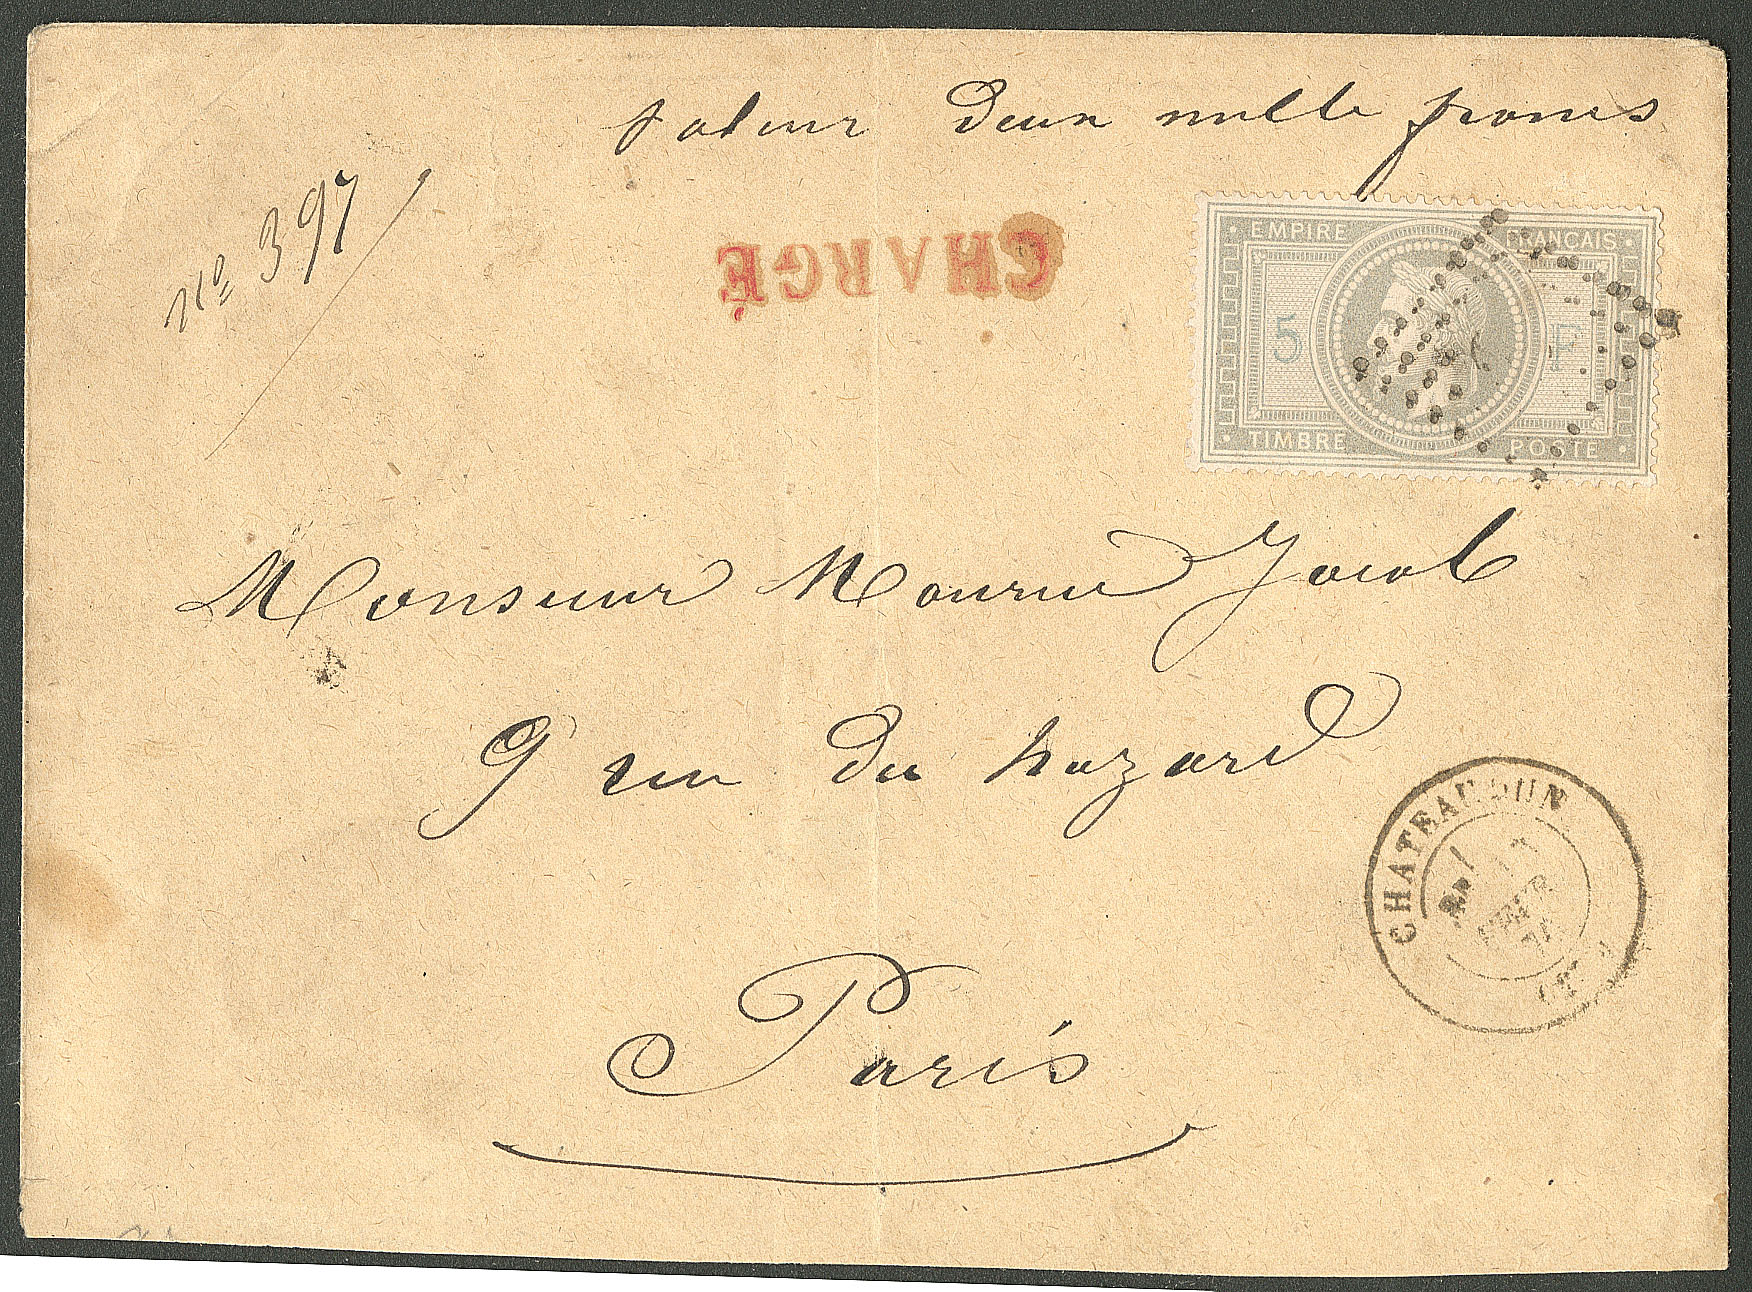 Valeur Deux mille francs
No 397
CHARGÉ
EMPIRE FRANÇAIS
5 F
TIMBRE POSTE
Monsieur Maurice Jacob
9 rue du hazard
CHATEAUDUN
Paris